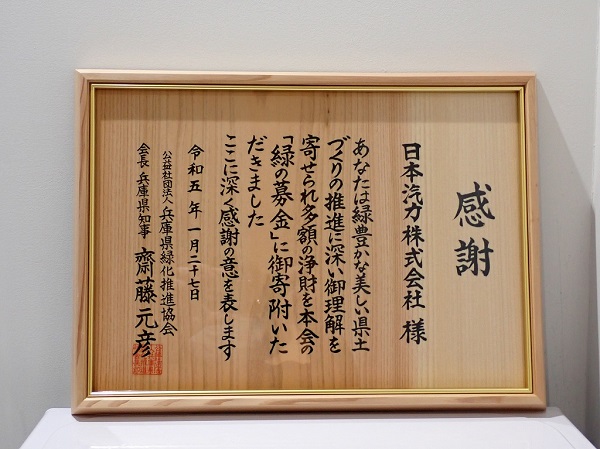 感謝
日本汽力株式会社 様
あなたは緑豊かな美しい県土
づくりの推進に深い御理解を
寄せられ多額の浄財を本会の
「緑の募金」に御寄附いた
だきました
ここに深く感謝の意を表します
令和五年一月二十七日
公益社団法人 兵庫県緑化推進協会
会長 兵庫県知事 齋藤元彦